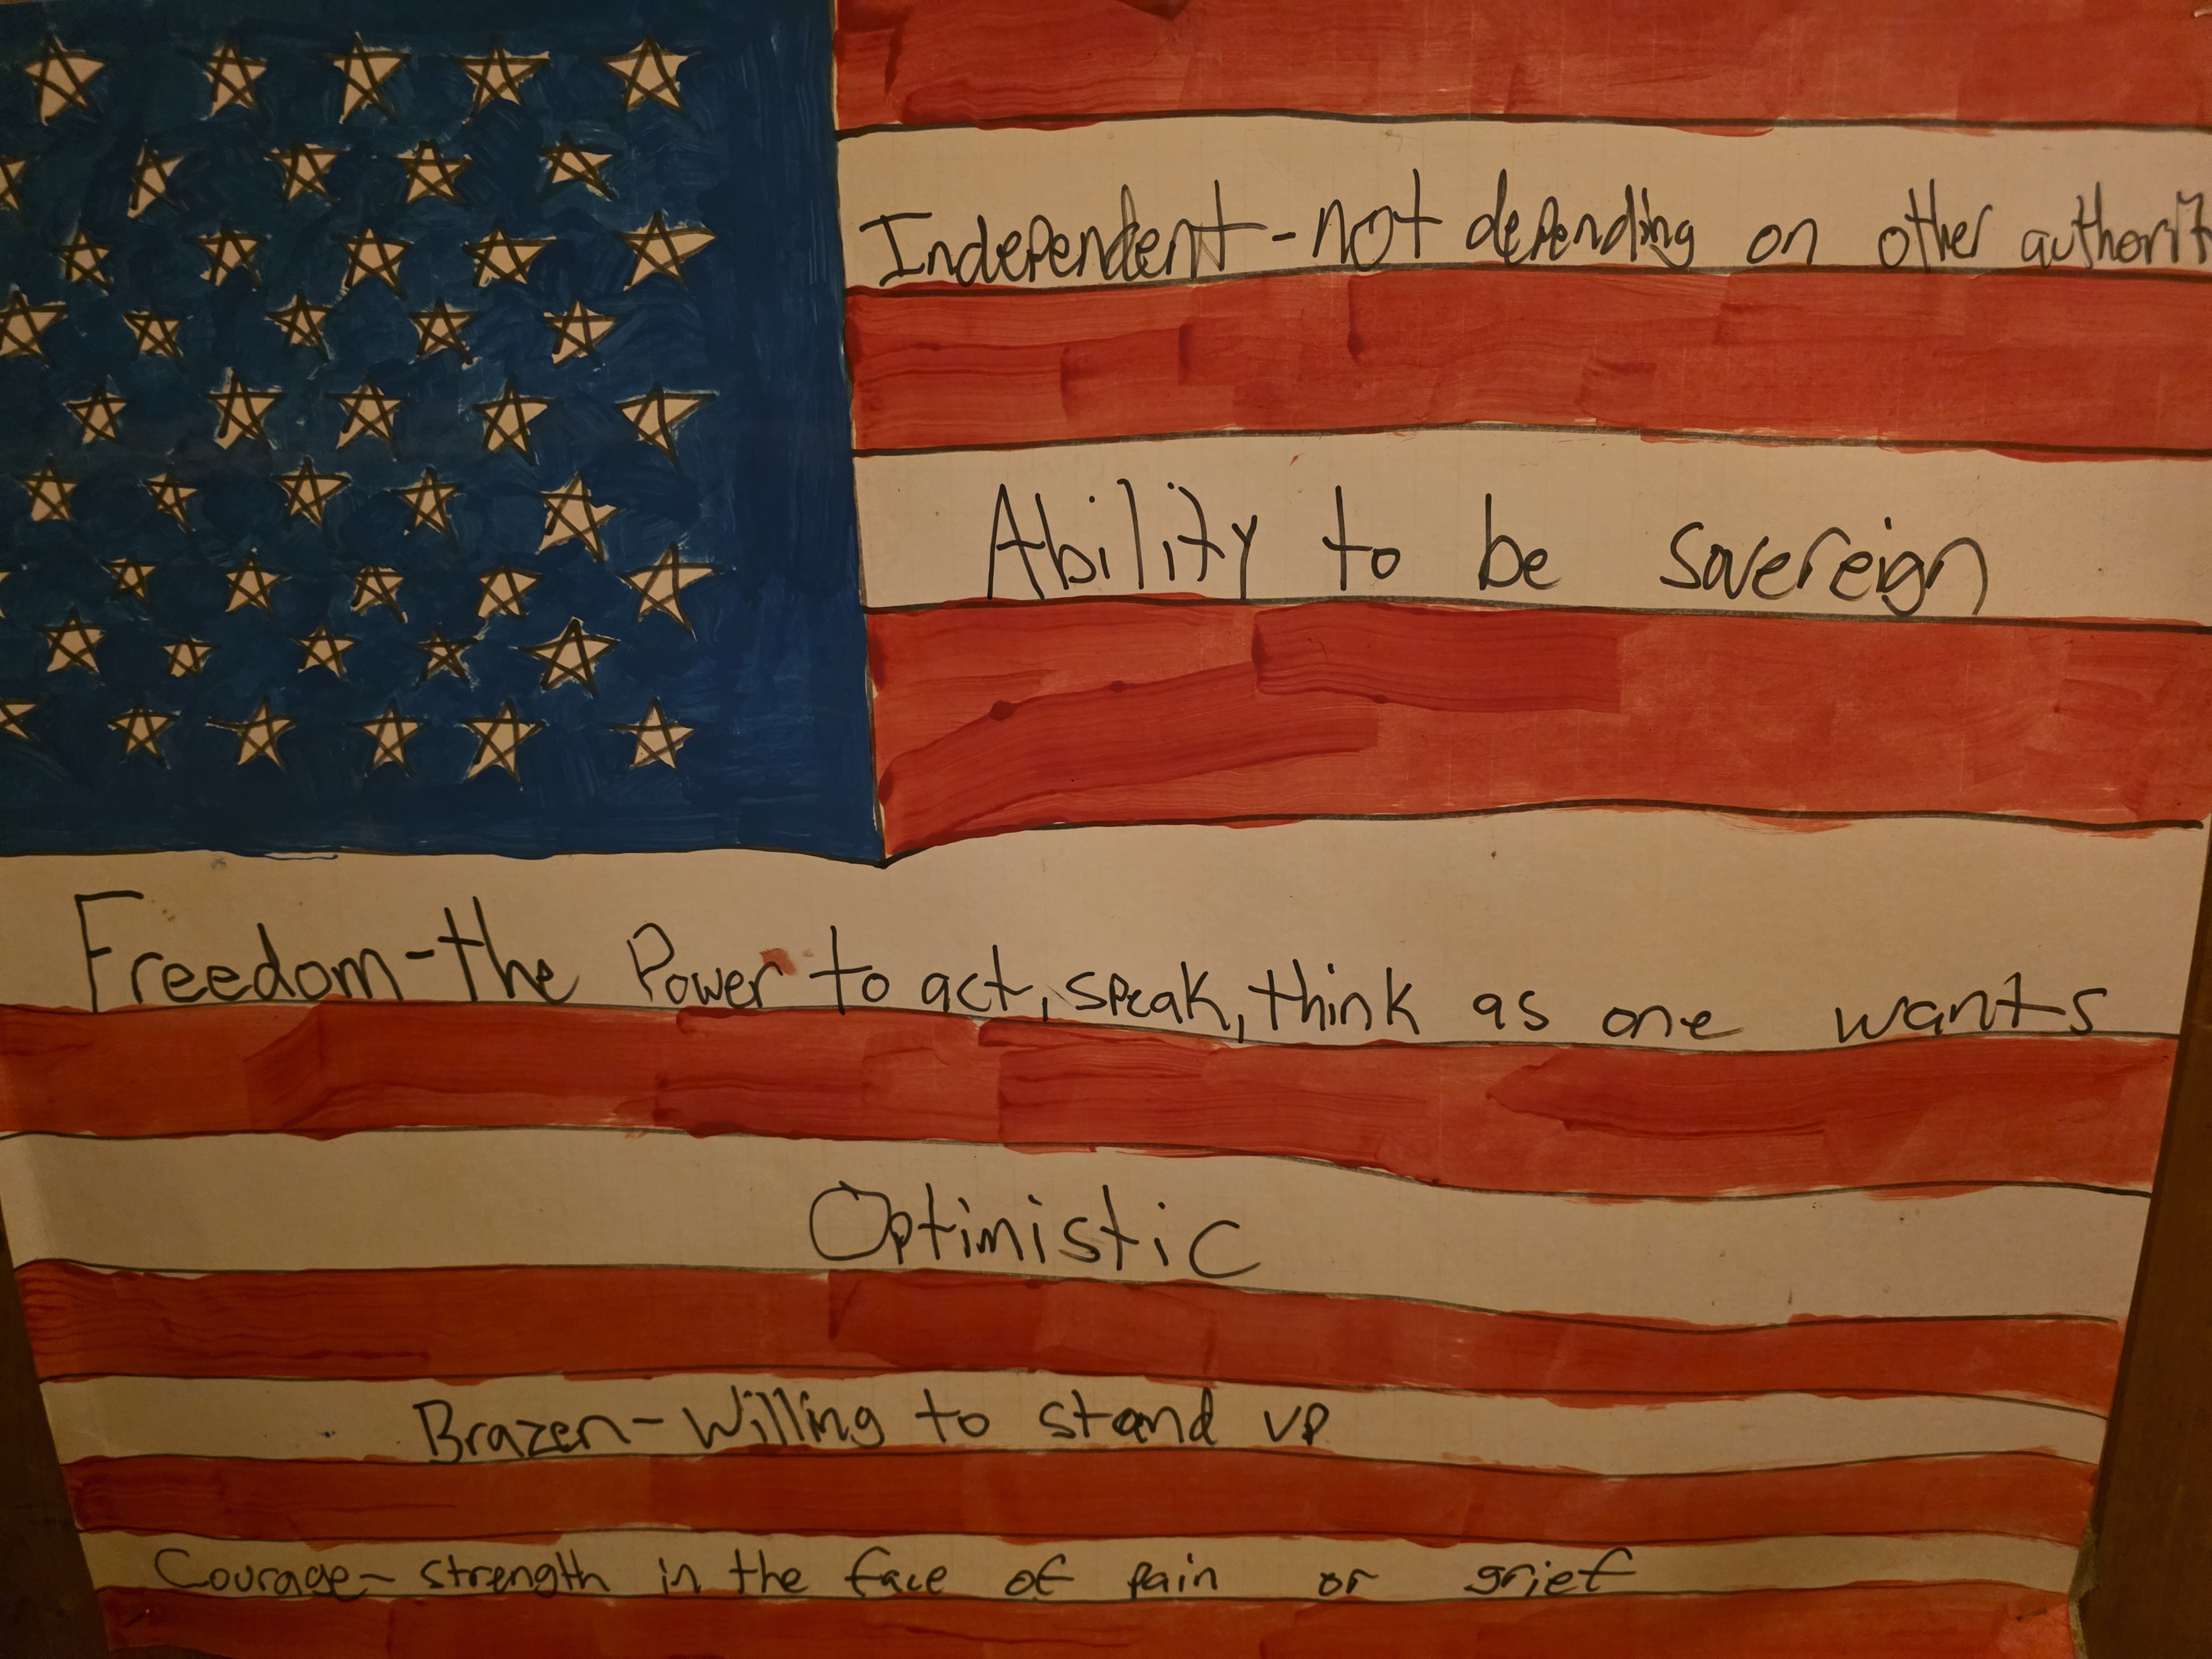 Independent - not depending on other authorit
Ability to be sovereign
Freedom - the Power to act, speak, think as one wants
Optimistic
Brazen - Willing to stand up
Courage - strength in the face of pain or grief